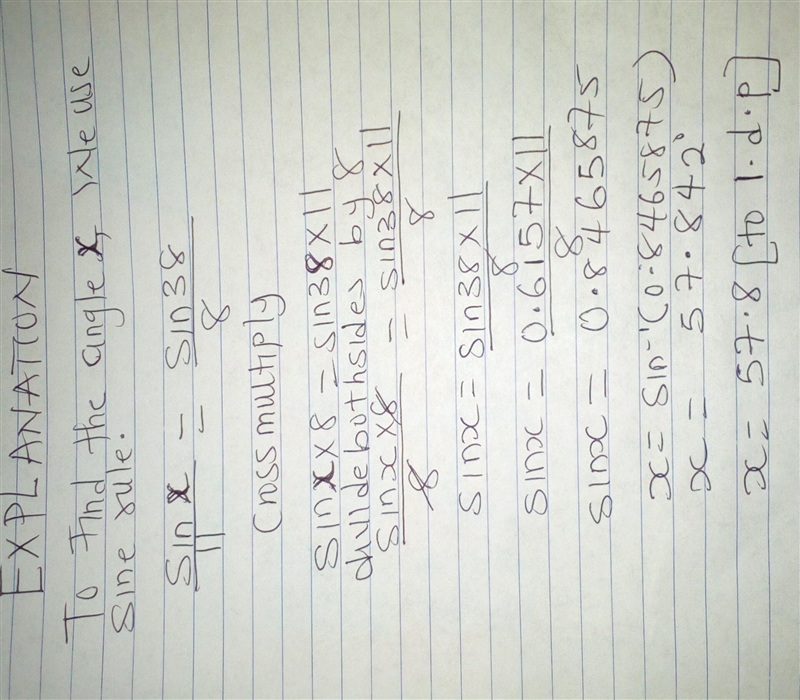 EXPLANATION
To find the angle x, We use
Sine rule.
Sin x = Sin38
11 8
Cross multiply
Sinx x 8 = Sin38 x 11
divide bothsides by 8
Sinx x 8 = Sin38 x 11
8 8
Sinx = Sin38 x 11
8
Sinx = 0.6157 x 11
8
Sinx = 0.8465875
x = Sin⁻¹(0.8465875)
x = 57.842°
x = 57.8 [to 1.d.p]